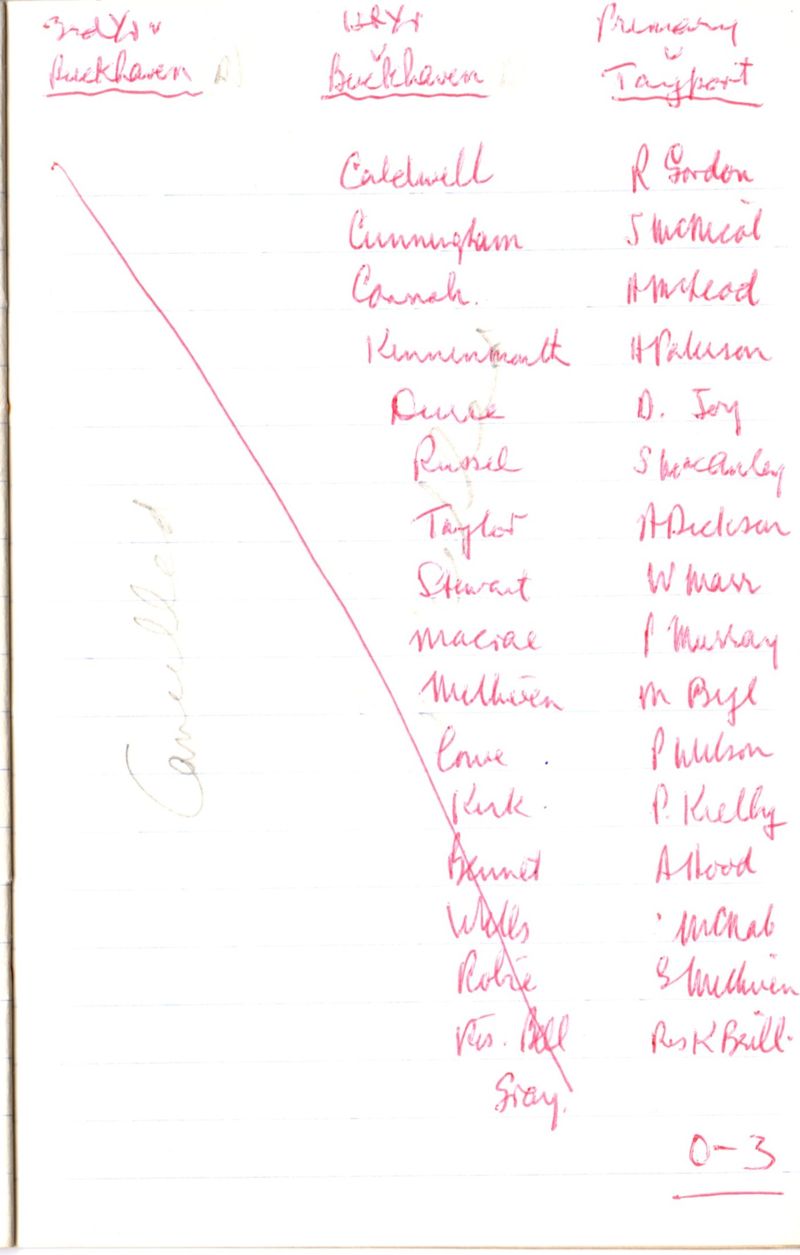 3rd XV v Buckhaven (A)
HKXV v Buckhaven
Primary v Tayport
Cancelled
Caldwell
Cunningham
Cormack.
Kinninmonth
Duise
Russel
Taylor
Stewart
Macrae
Methven
Lowe
Kirk
Bennet
Wells
Robie
Res. Bell
Gray.
R Gordon
S McNicol
A McLeod
A Paterson
D. Joy
S MacAuley
A Dickson
W Marr
P Murray
M Bryl
P Wilson
P. Kielby
A Hood
McNab
S Methven
Res K Brill.
0-3